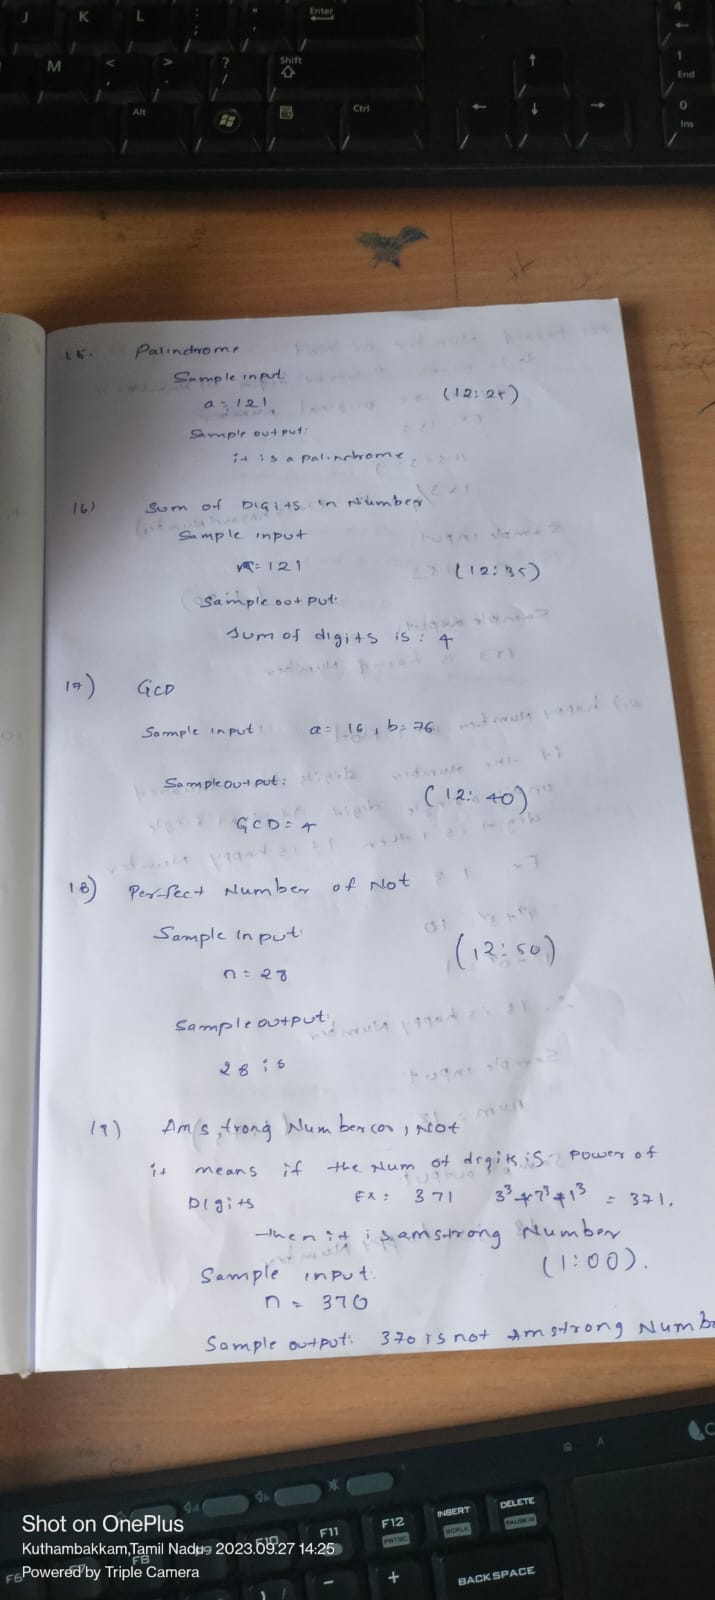 J K L : ; " ' Enter
M < > ? / Shift
Alt Ctrl
4
1
End
0
Ins
15. Palindrome
Sample input:
a = 121
(12:25)
Sample output:
it is a palindrome
16) Sum of Digits in Number
Sample input
n = 121
(12:35)
Sample output:
Sum of digits is : 4
17) GCD
Sample input: a = 16, b = 76
Sample output:
(12:40)
GCD = 4
18) Perfect Number of Not
Sample Input:
(12:50)
n = 28
Sample output:
28 is
19) Amstrong Number (or) Not
it means if the Num of digits is power of
Digits Ex: 371 3³+7³+1³ = 371.
then it is amstrong Number
(1:00).
Sample input:
n = 370
Sample output: 370 is not Amstrong Numbe
F11 F12 INSERT DELETE
PRTSC SCRLK PAUSE
- + BACKSPACE
Shot on OnePlus
Kuthambakkam,Tamil Nadu 2023.09.27 14:25
Powered by Triple Camera